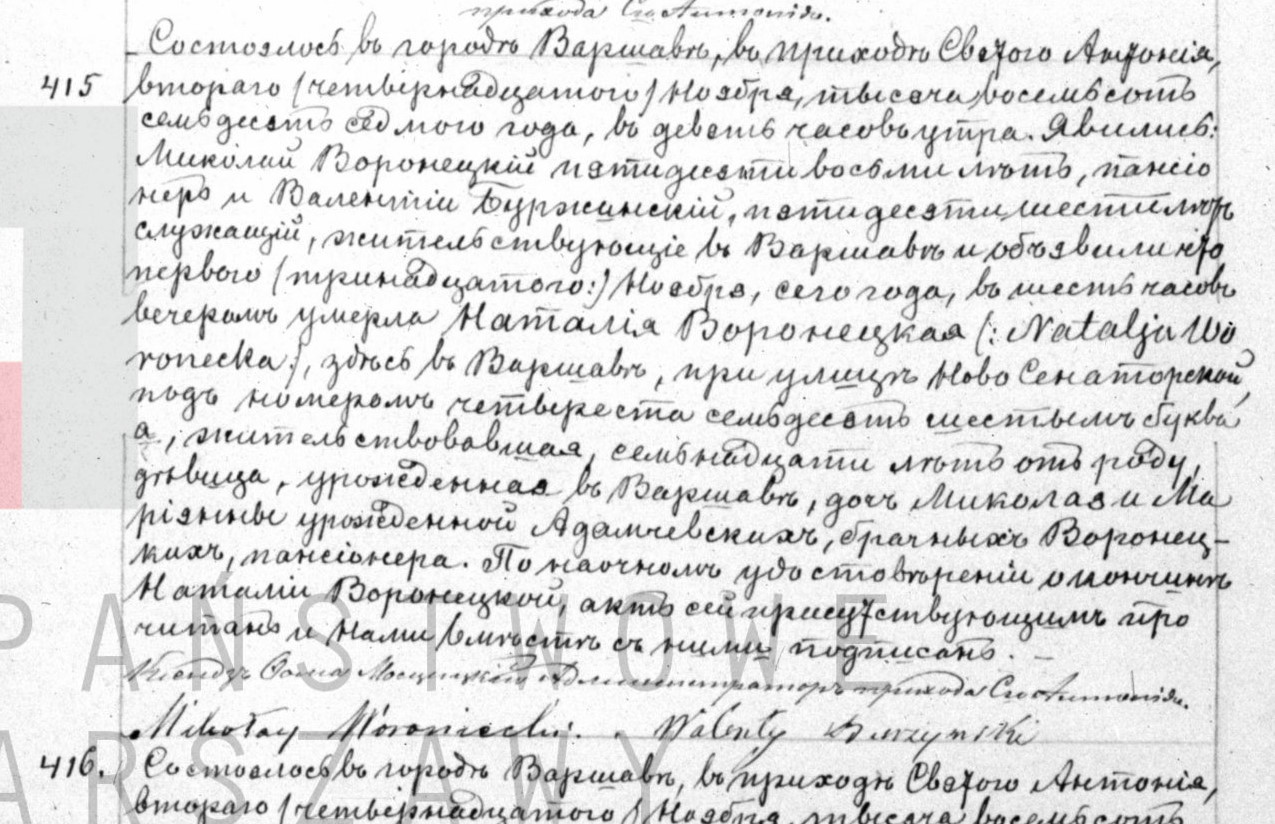 прихода Св. Антонія.
Состоялось въ городѣ Варшавѣ, въ приходѣ Святого Антонія,
415 втораго (четырнадцатого) Ноября, тысяча восемьсотъ
семьдесятъ седмого года, въ девять часовъ утра. Явились:
Миколай Воронецкій пятидесяти восьми лѣтъ, пансіо
неръ и Валентій Буржинскій, пятидесяти шести лѣтъ
служащій, жительствующіе въ Варшавѣ и объявили что
первого (тринадцатого:) Ноября, сего года, въ шесть часовъ
вечеромъ умерла Наталія Воронецкая (: Natalja Wo
ronecka:), здѣсь въ Варшавѣ, при улицѣ Ново Сенаторской,
подъ номеромъ четыреста семьдесятъ шестымъ буква
а, жительствовавшая, семьнадцати лѣтъ отъ роду,
дѣвица, урожденная въ Варшавѣ, дочь Миколая и Ма
ріянны урожденной Адамчевскихъ, брачныхъ Воронец-
кихъ, пансіонера. По наочномъ удостовѣреніи о кончинѣ
Наталіи Воронецкой, актъ сей присутствующимъ про
читанъ и Нами вмѣстѣ съ ними подписанъ. —
Ксендзъ Администраторъ прихода Св. Антонія.
Mikołay Woroniecki. Walenty Burzynski
416. Состоялось въ городѣ Варшавѣ, въ приходѣ Святого Антонія,
втораго (четырнадцатого) Ноября, тысяча восемьсотъ
PAŃSTWOWE
ARSZAWY